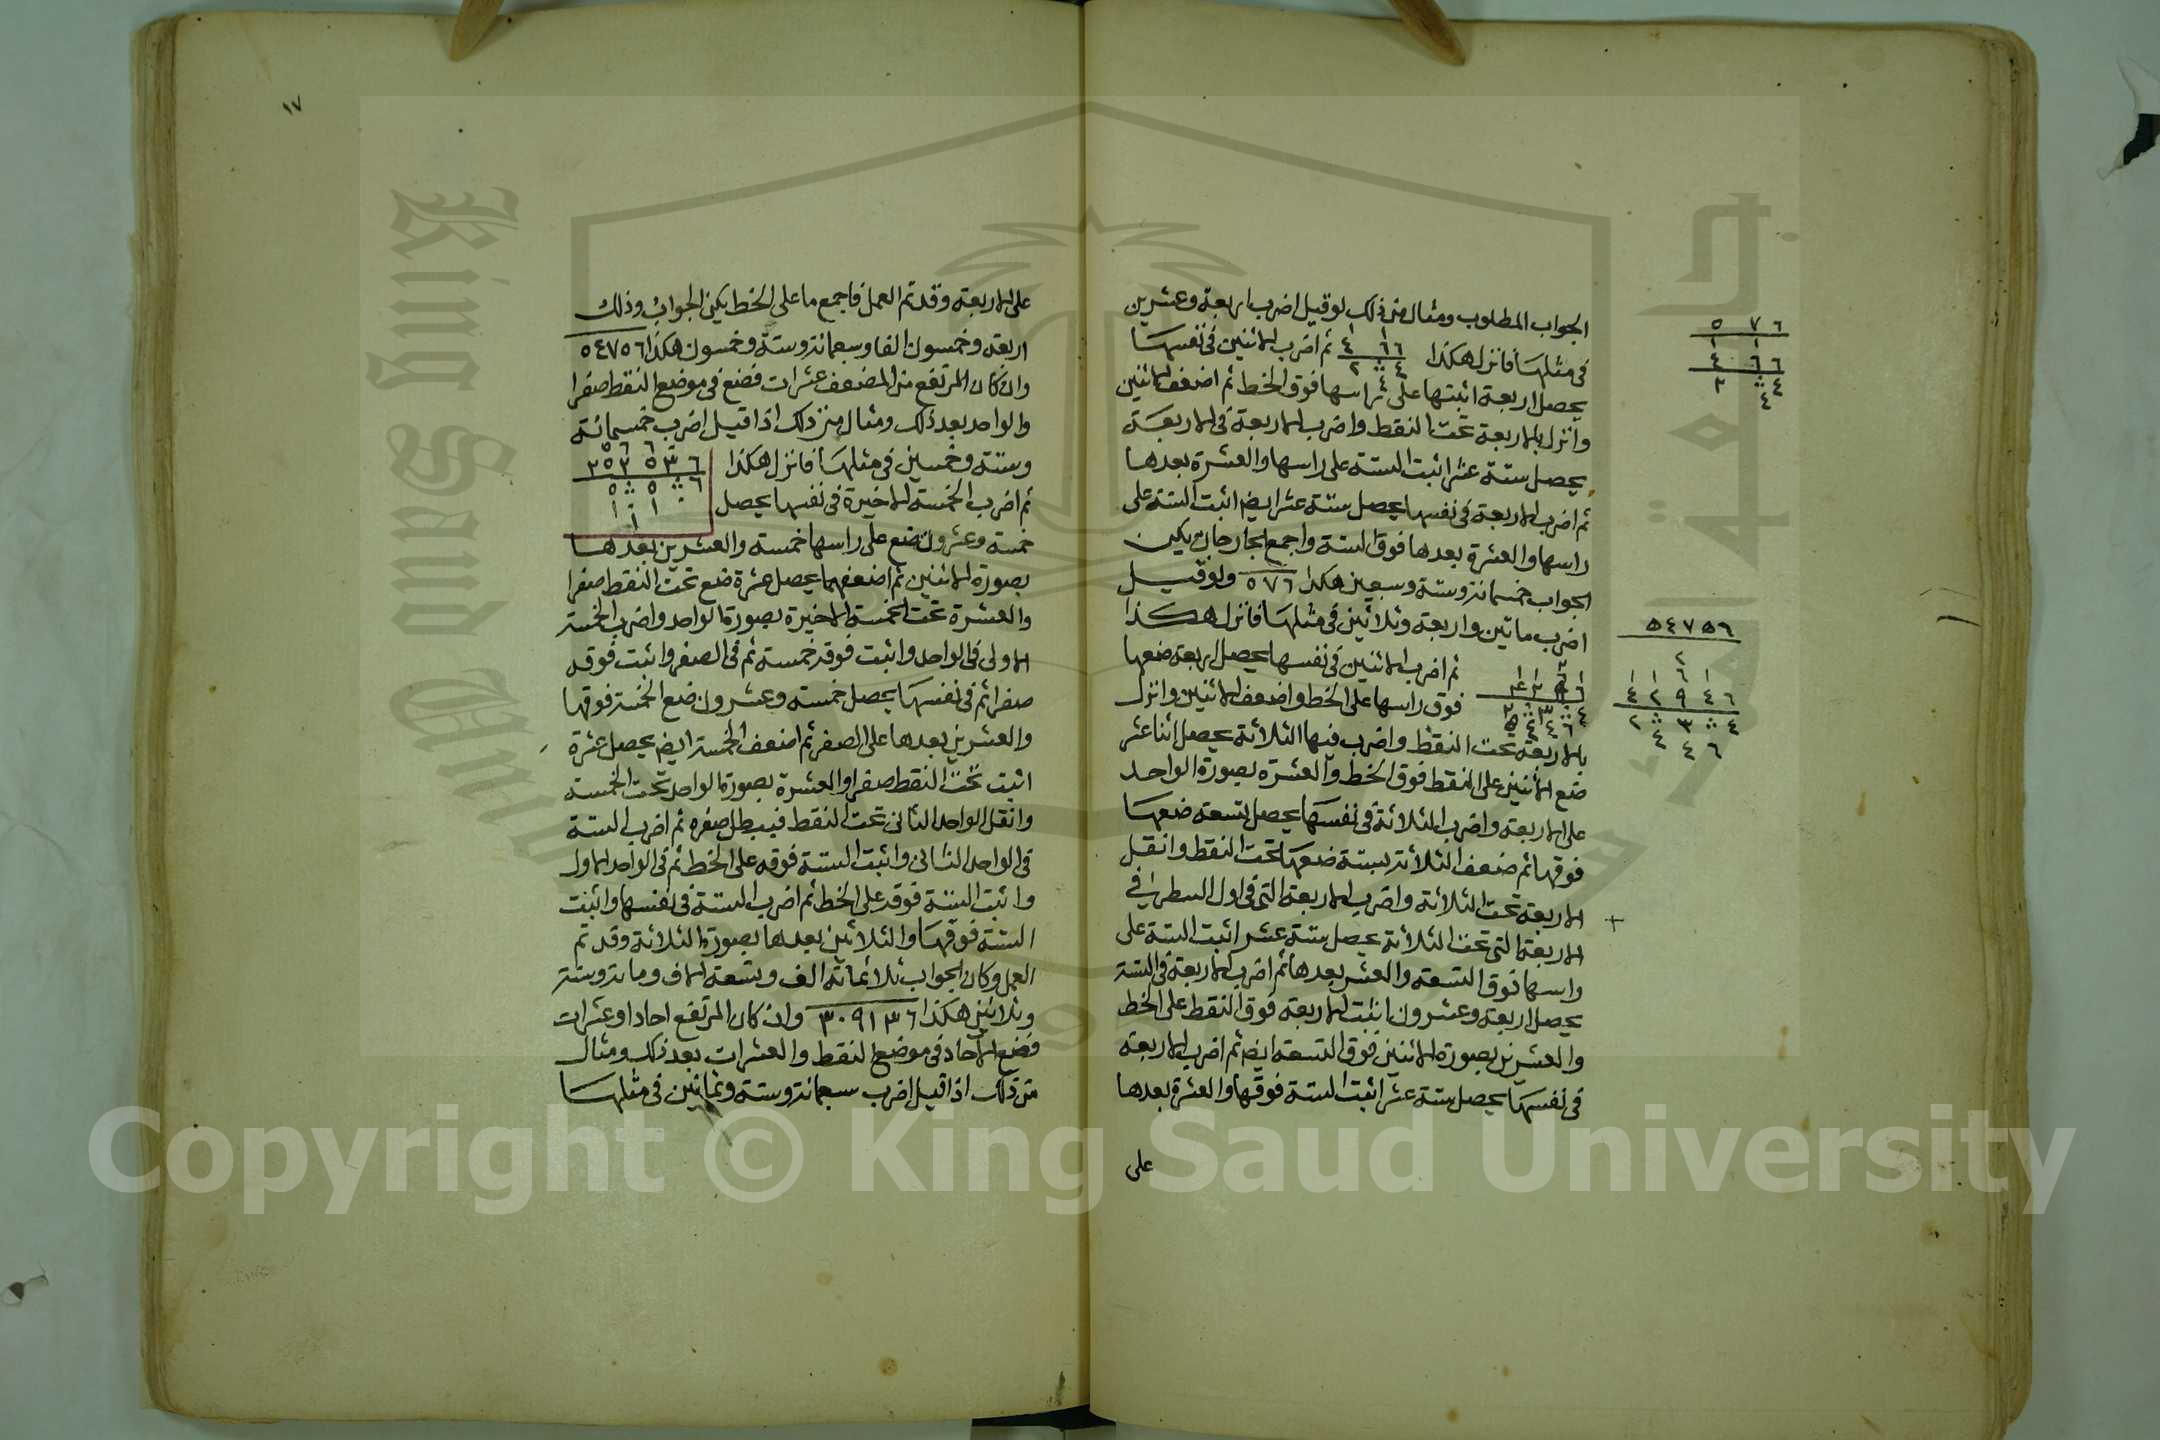 الجواب المطلوب ومثال من ذلك لو قيل اضرب اربعة وعشرين
في مثلها فانزل هكذا ثم اضرب الاثنين في نفسها
يحصل اربعة اثبتها على راسها فوق الخط ثم اضعف الاثنين
وانزل بالاربعة تحت النقط واضرب الاربعة في الاربعة
يحصل ستة عشر اثبت الستة على راسها والعشرة بعدها
ثم اضرب الاربعة في نفسها يحصل ستة عشر ايضا اثبت الستة على
راسها والعشرة بعدها فوق الستة واجمع يكن
الجواب خمسمائة وستة وسبعين هكذا ٥٧٦ ولو قيل
اضرب ماتين واربعة وثلاثين في مثلها فانزل هكذا
ثم اضرب الاثنين في نفسها يحصل اربعة ضعها
فوق راسها على الخط واضعف الاثنين وانزل
بالاربعة تحت النقط واضرب فيها الثلاثة يحصل اثنا عشر
ضع الاثنين على النقط فوق الخط والعشرة بصورة الواحد
على الاربعة واضرب الثلاثة في نفسها يحصل تسعة ضعها
فوقها ثم ضعف الثلاثة بستة ضعها تحت النقط وانقل
الاربعة تحت الثلاثة واضرب الاربعة التي في اول السطر في
الاربعة التي تحت الثلاثة يحصل ستة عشر اثبت الستة على
راسها فوق التسعة والعشر بعدها ثم اضرب الاربعة في الستة
يحصل اربعة وعشرون اثبت الاربعة فوق النقط على الخط
والعشرين بصورة الاثنين فوق التسعة ايضا ثم اضرب الاربعة
في نفسها يحصل ستة عشر اثبت الستة فوقها والعشرة بعدها
على
٥ ٧ ٦
٥٤٧٥٦
١٧
على الاربعة وقد تم العمل فاجمع ما على الخط يكن الجواب وذلك
اربعة وخمسون الفا وسبعمائة وستة وخمسون هكذا ٥٤٧٥٦
وان كان المرتفع من المضعف عشرات فضع في موضع النقط صفرا
والواحد بعد ذلك ومثال من ذلك اذا قيل اضرب خمسمائة
وستة وخمسين في مثلها فانزل هكذا
ثم اضرب الخمسة الاخيرة في نفسها يحصل
خمسة وعشرون ضع على راسها خمسة والعشرين بعدها
بصورة الاثنين ثم اضعفها يحصل عشرة ضع تحت النقط صفرا
والعشرة تحت الخمسة الاخيرة بصورة الواحد واضرب الخمسة
الاولى في الواحد واثبت فوقه خمسة ثم في الصفر واثبت فوقه
صفرا ثم في نفسها يحصل خمسة وعشرون ضع الخمسة فوقها
والعشرين بعدها على الصفر ثم اضعف الخمسة ايضا يحصل عشرة
اثبت تحت النقط صفرا والعشرة بصورة الواحد تحت الخمسة
وانقل الواحد الثاني تحت النقط فيبطل صفره ثم اضرب الستة
في الواحد الثاني واثبت الستة فوقه على الخط ثم في الواحد الاول
واثبت الستة فوقه على الخط ثم اضرب الستة في نفسها واثبت
الستة فوقها والثلاثين بعدها بصورة الثلاثة وقد تم
العمل وكان الجواب ثلاثمائة الف وتسعة الاف ومائة وستة
وثلاثين هكذا ٣٠٩١٣٦ وان كان المرتفع احادا وعشرات
فضع الاحاد في موضع النقط والعشرات بعد ذلك ومثال
من ذلك اذا قيل اضرب سبعمائة وستة وثمانين في مثلها
Copyright © King Saud University
King Saud University